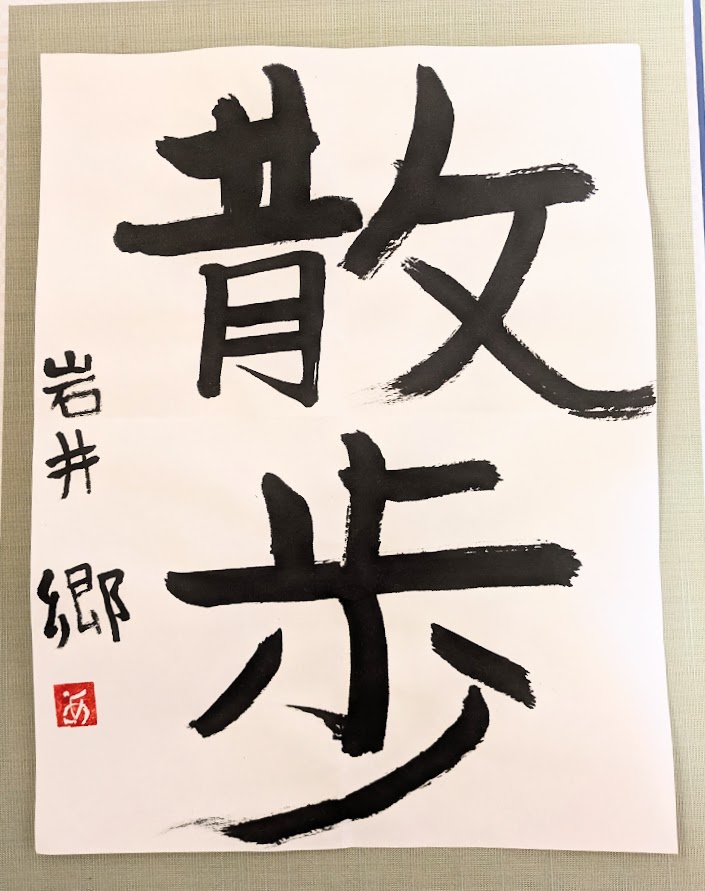 散歩
岩井 郷